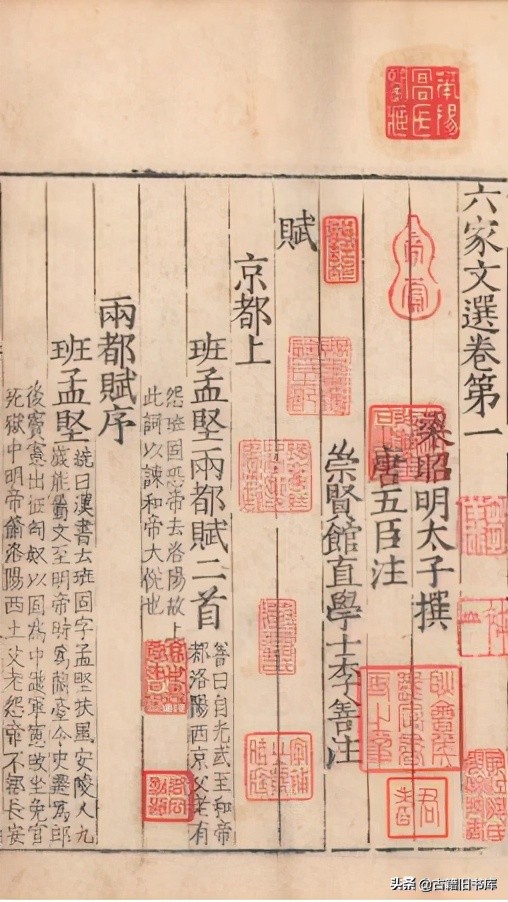 六家文選卷第一
梁昭明太子撰
唐五臣注
崇賢館直學士李善注
賦
京都上
班孟堅兩都賦二首
善曰自光武至和帝
都洛陽西京父老有
怨班固恐帝去洛陽故上
此詞以諫和帝大悅也
兩都賦序
班孟堅
銑曰漢書云班固字孟堅扶風安陵人九
歲能屬文至明帝時為蘭臺令史遷為郎
後竇憲出征匈奴以固為中護軍憲敗坐免官
死獄中明帝脩洛陽西土父老怨帝不都長安
头条 @古籍旧书库